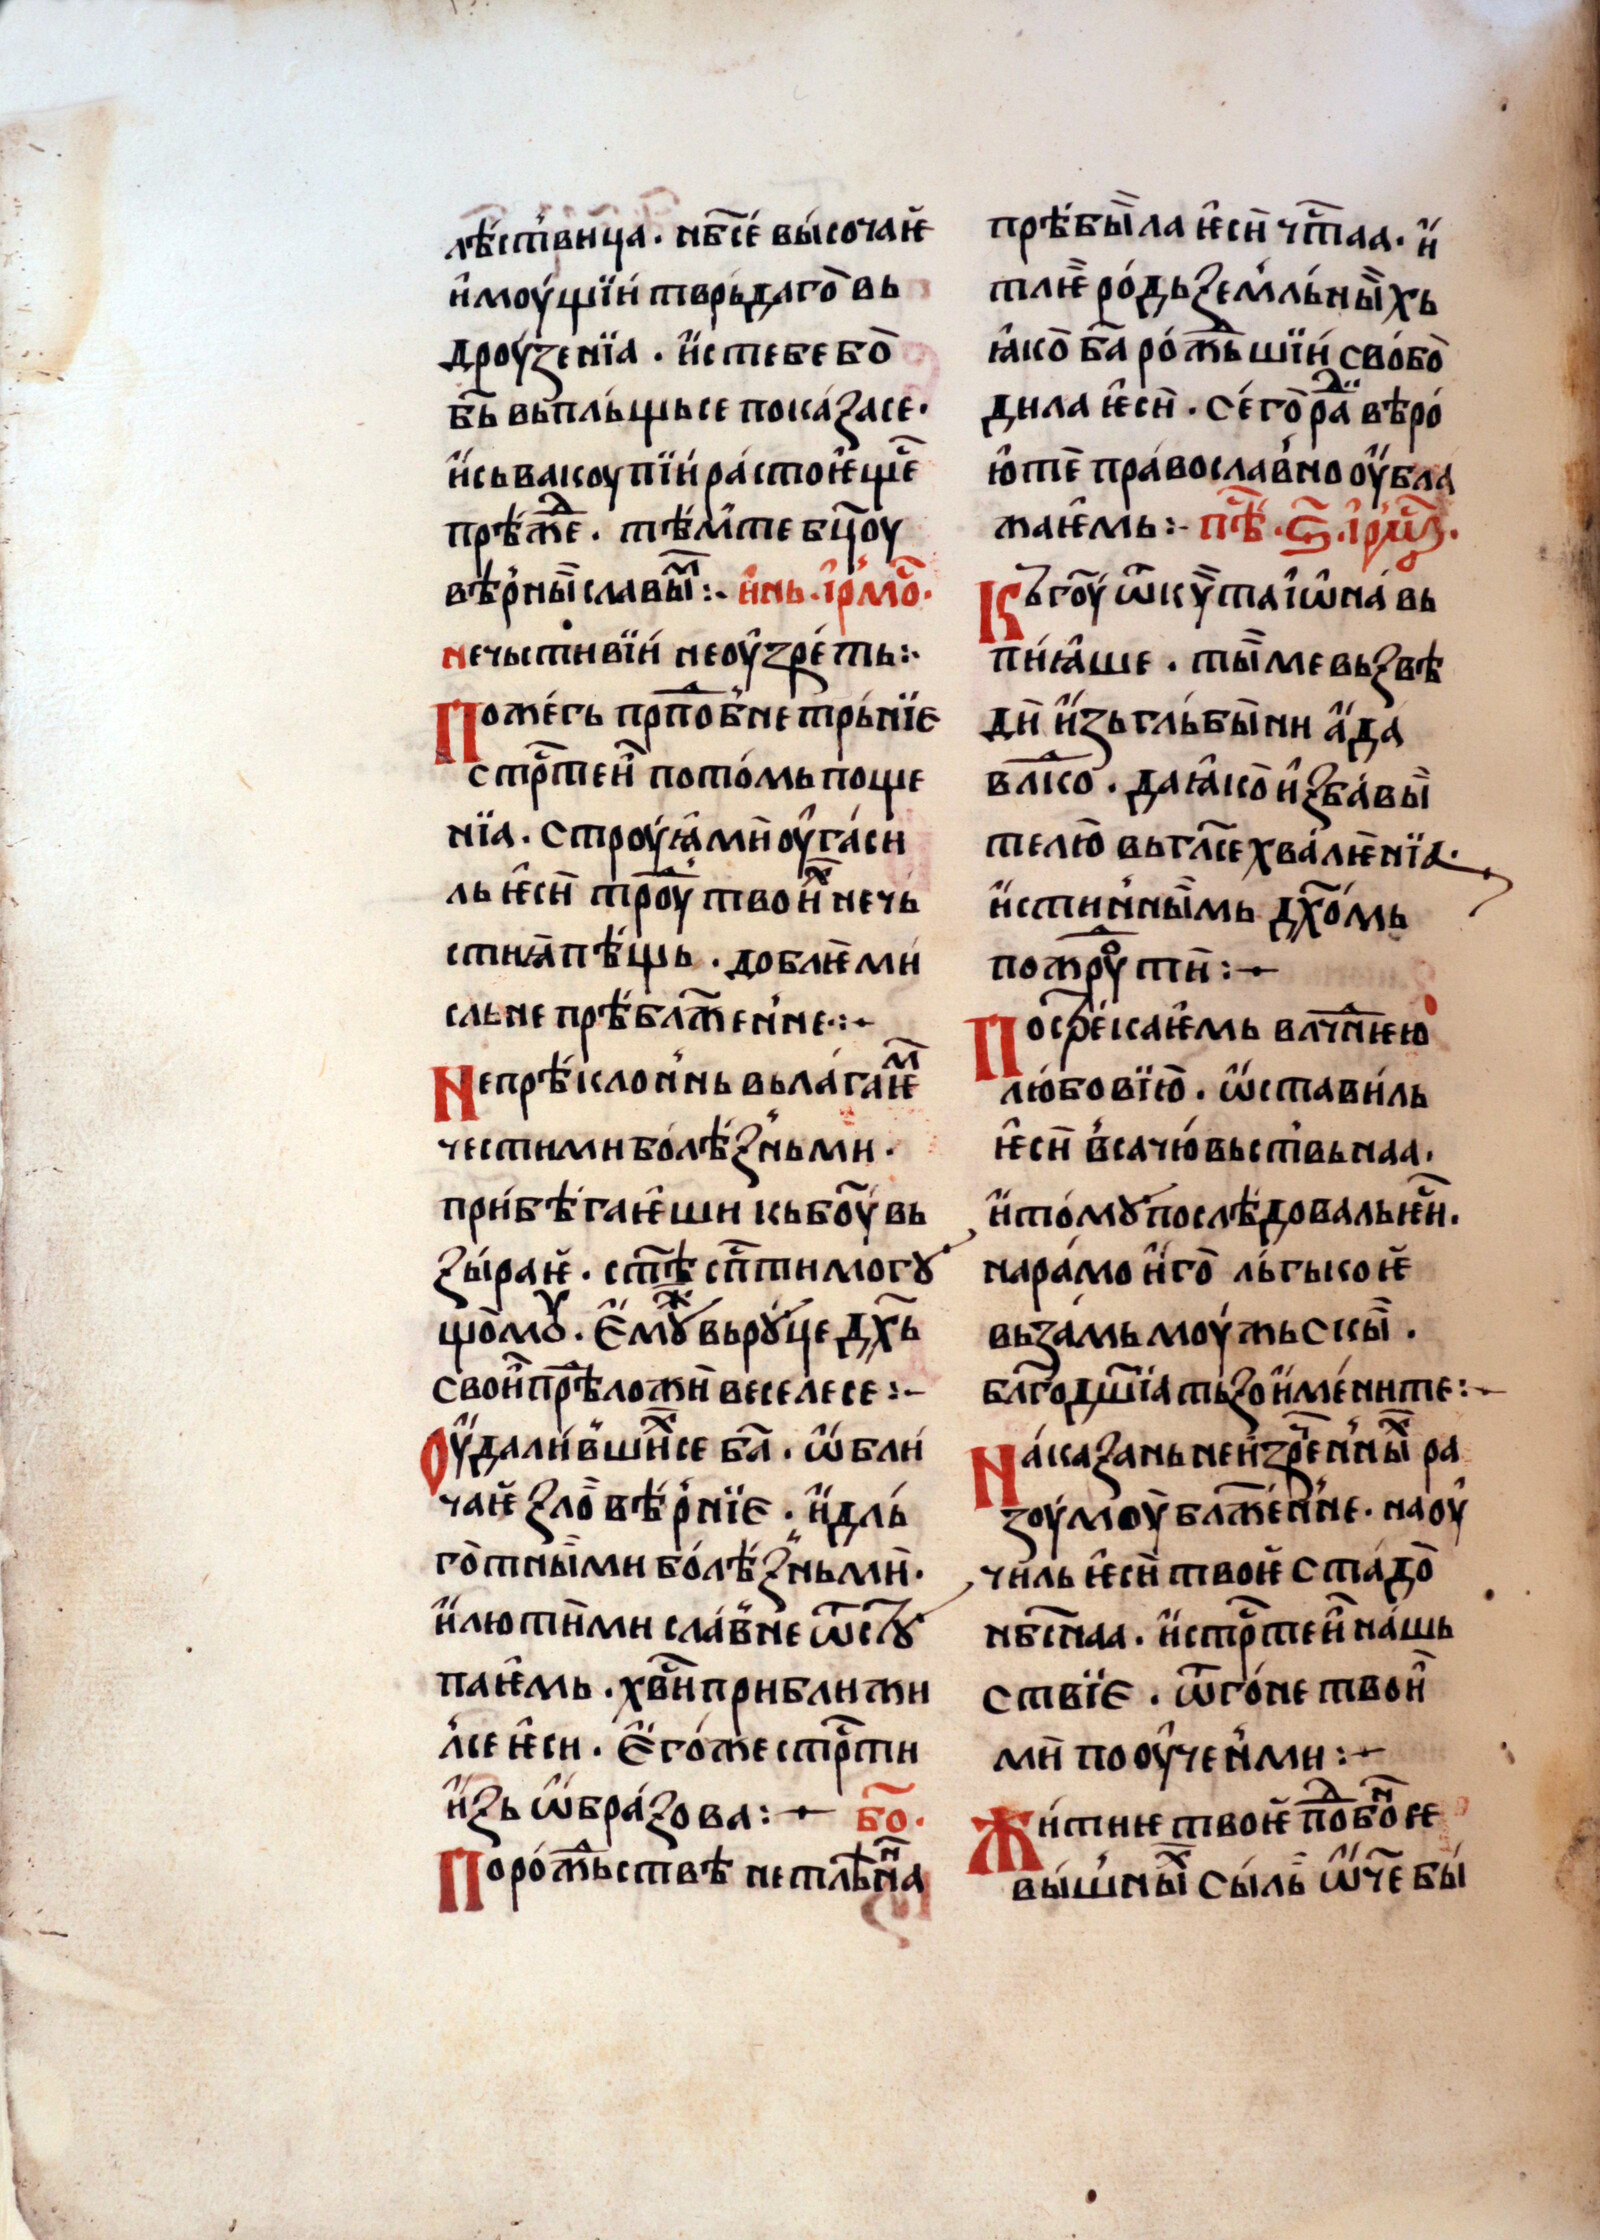 лѣ́ствица. нб҃се́ вы́сочаѥ
и҆моу́щїи тврьдаго̀ вь
дроу́зенїа. и҆с тебе бо̀
б҃ь вьпль́щьсе пока́засе.
и҆ сьвакоупїи ра́стоꙗще҃
прѣ́жⷣе. тѣ́м̾те бц҃оу
вѣ́р̾ный славыⷨ:· и҆нь. і҆рмо҃.
нечьстивїи не оу҆зре́ть:·
Пожегь прпⷣоб̾не трь́нїе
стр҃тей пото́мь поще
нїа. строуꙗ́ми оу҆га́си
ль ѥ҆сѝ трⷣоу́ твоиⷯ нечь
стиꙗ̀ пѣ́щь. доблѥми
сльне прѣ́блаж҃ен̾не:·
Непрѣ́клон̾нь вьла́гаѥⷨ
честими болѣ́зньми.
при́бѣ́гаѥ҆ши кь бо҃у́ вь
зы́раѥ. ст҃ѣ сп҃стимогꙋ
що́мꙋ. е҆мꙋⷤ вь рꙋ́це дх҃ь
свои прѣ́ложи веселесе:·
Оу҆дали́вшиⷯсе ба҃. ѡ҆бли
чаѥ зло̀вѣ́р̾нїе. и҆ дль́
го̀тны́ми болѣ́зньми.
и҆ лютѝми сла́в̾не ѿстꙋ
паѥ҆мь. хв҃и приближи
л̾се ѥ҆си. е҆го́же стр҃ти
и҆зь ѡ҆бра́зова:· бо҃.
По рожⷣьствѣ нетлѣн̾на
прѣ́бы́ла ѥ҆сѝ чт҃аа. и҆
тлѥ̀ ро́дь земль́ны́хь
ꙗ҆ко̀ ба҃ ро́жⷣьшїи сво́бо̀
дила ѥ҆сѝ. се́го̀ раⷣ вѣро́
ю҆тѐ пра́вослав̾но оу҆бла
жаѥ҆мь:· пѣ҃. ѕ҃. і҆рмⷭ.
Кь гоу҃ ѿ кѵта і҆ѡ҆на́ вь
пи́ꙗ҆ше. ты́ ме вьзвѣ
дѝ и҆зь гль́бы́ни а҆́да
влⷣко. да ꙗ҆ко̀ и҆зба́вы́
телю̀ вь гл҃се хва́лѥнїа.
и҆стин̾ны́мь дх҃о́мь
пожрⷪ҇у ти:·
По срⷣе́ сиаѥ҆мь влⷣчнѥю
любовїю̀. ѡ҆стави́ль
ѥ҆сѝ в̾са чю́вьств̾ьнаа.
и҆ то́мꙋ послѣ́доваль ѥ҆си҃.
на ра́мо и҆го̀ льгькоѥ
вьза́мь моу́жьскы̀.
благⷣодш҃їа тьзои҆ме́ните:·
На́казань неизрⷣе́н̾ныⷯ ра
зоу́моу̀ блаж҃е́н̾не. наоу҆
чи́ль ѥ҆сѝ твоѥ ста́до̀
нбⷭ҇наа. и҆ стр҃тей на́шь
ствїе. ѿго́не твои́
мѝ поо҆у́чен̾ми:·
Жи́тиѥ твоѥ пⷣобноⷩ се
вы́ш̾ныⷯ сы́ль ѡ҆тч҃е бы́